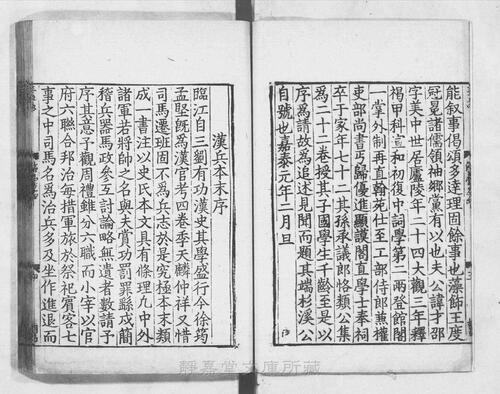 能叙事偈頌多達理固餘事也藻飾王度
冠冕諸儒領袖鄉黨有以也夫公諱才邵
字美中世居廬陵年二十四大觀三年釋
褐甲科宣和初復中詞學第二兩登館閣
一掌外制再直翰苑仕至工部侍郎兼權
吏部尚書丐歸優進顯謨閣直學士奉祠
卒于家年七十二其孫承議郎恪類公集
為二十二卷授其子國學生千齡至是以
序為請故為追述見聞而題其端杉溪公
自號也嘉泰元年二月旦
漢兵本末序
臨江自三劉有功漢史其學盛行今徐筠
孟堅旣為漢官考四卷季天麟仲祥又惜
司馬遷班固不為兵志於是究極本末類
成一書注以史氏本文具有條理九中外
諸軍若將帥之名與夫賞功罰罪繇戍簡
稽兵器馬政參互討論略無遺者數請予
序其意予觀周禮雖分六職而小宰以官
府六聯合邦治每措軍旅於祭祀賓客七
事之中司馬名為治兵多及坐作進退而
靜嘉堂文庫所藏